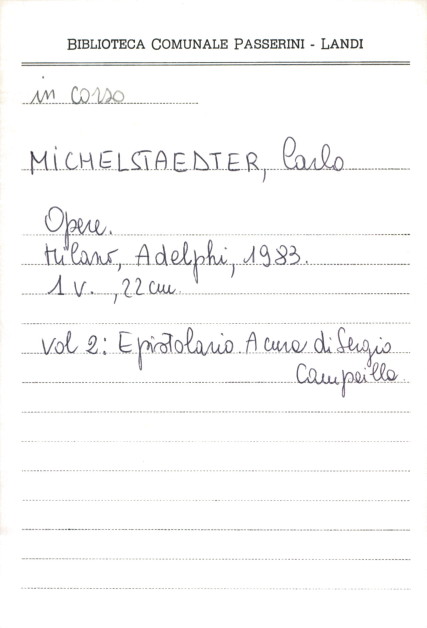 BIBLIOTECA COMUNALE PASSERINI - LANDI
in corso
MICHELSTAEDTER, Carlo
Opere.
Milano, Adelphi, 1983.
1 v. , 22 cm.
vol 2: Epistolario. A cura di Sergio
Campailla.